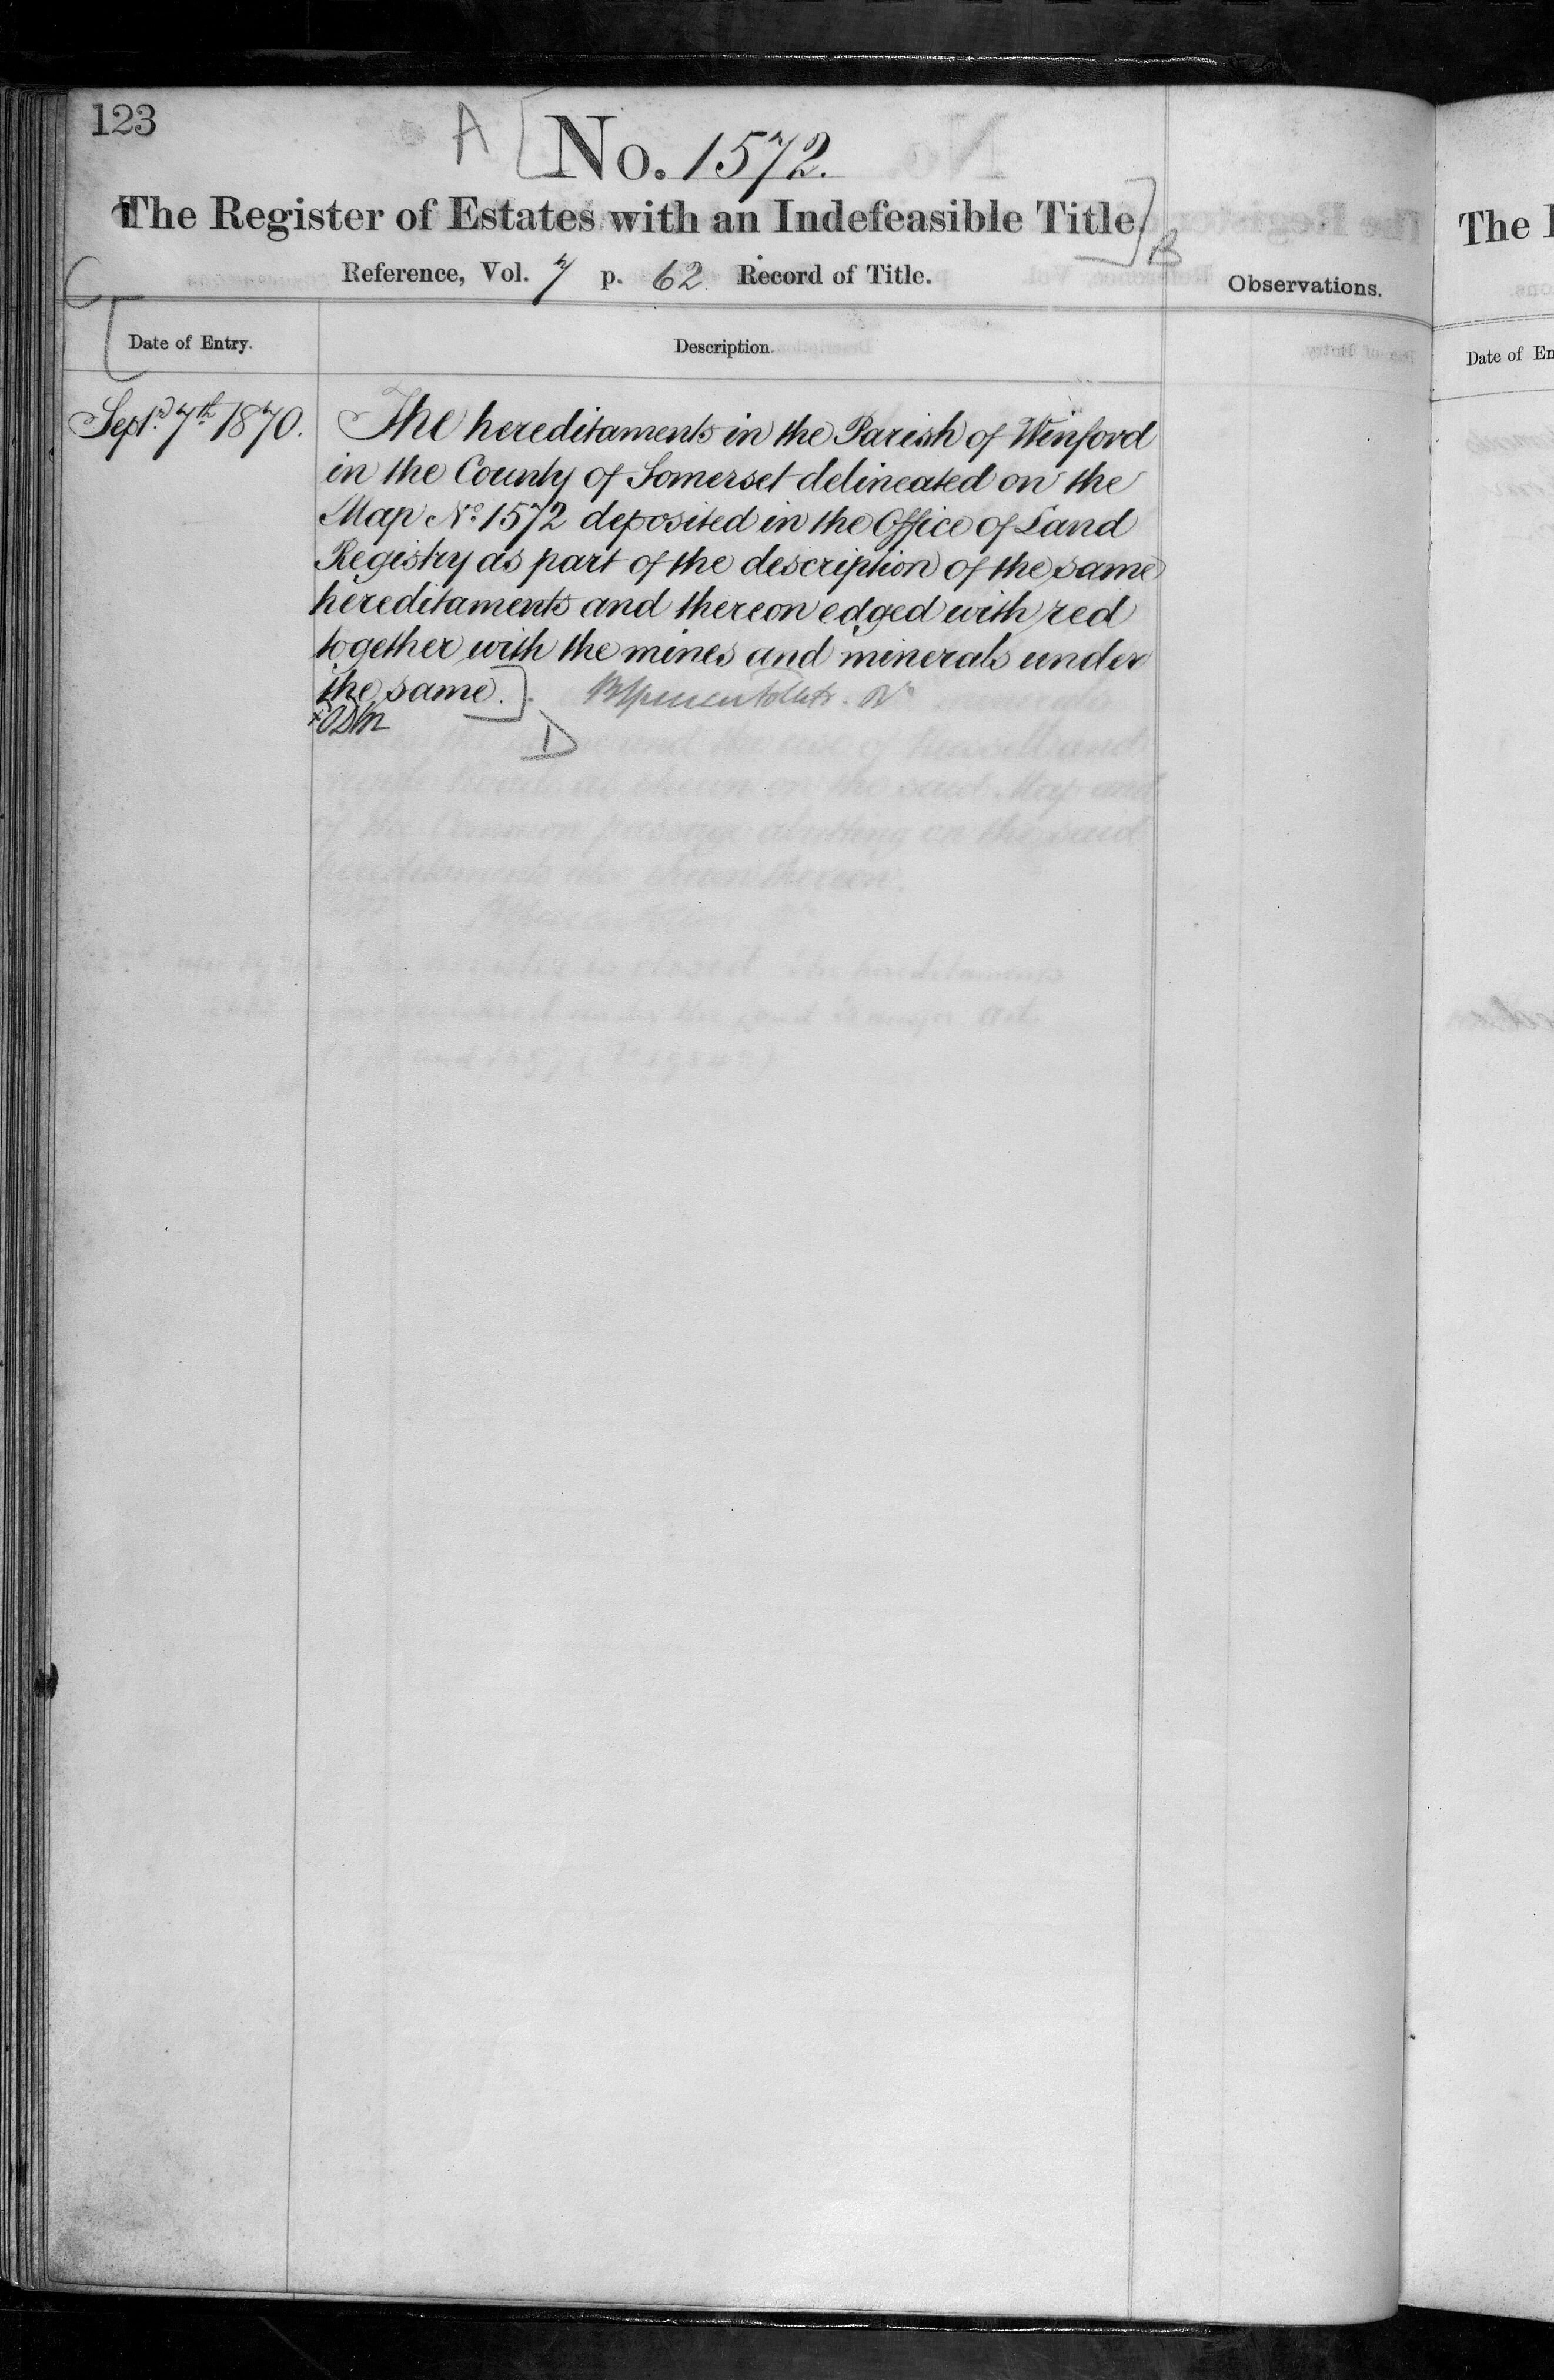 123
A
No. 1572.
The Register of Estates with an Indefeasible Title.
B
Reference, Vol. 7 p. 62 Record of Title.
Observations.
C
Date of Entry.
Description.
Sept. 7th 1870.
The hereditaments in the Parish of Winford
in the County of Somerset delineated on the
Map No. 1572 deposited in the Office of Land
Registry as part of the description of the same
hereditaments and thereon edged with red
together with the mines and minerals under
the same.
D
The
Date of En